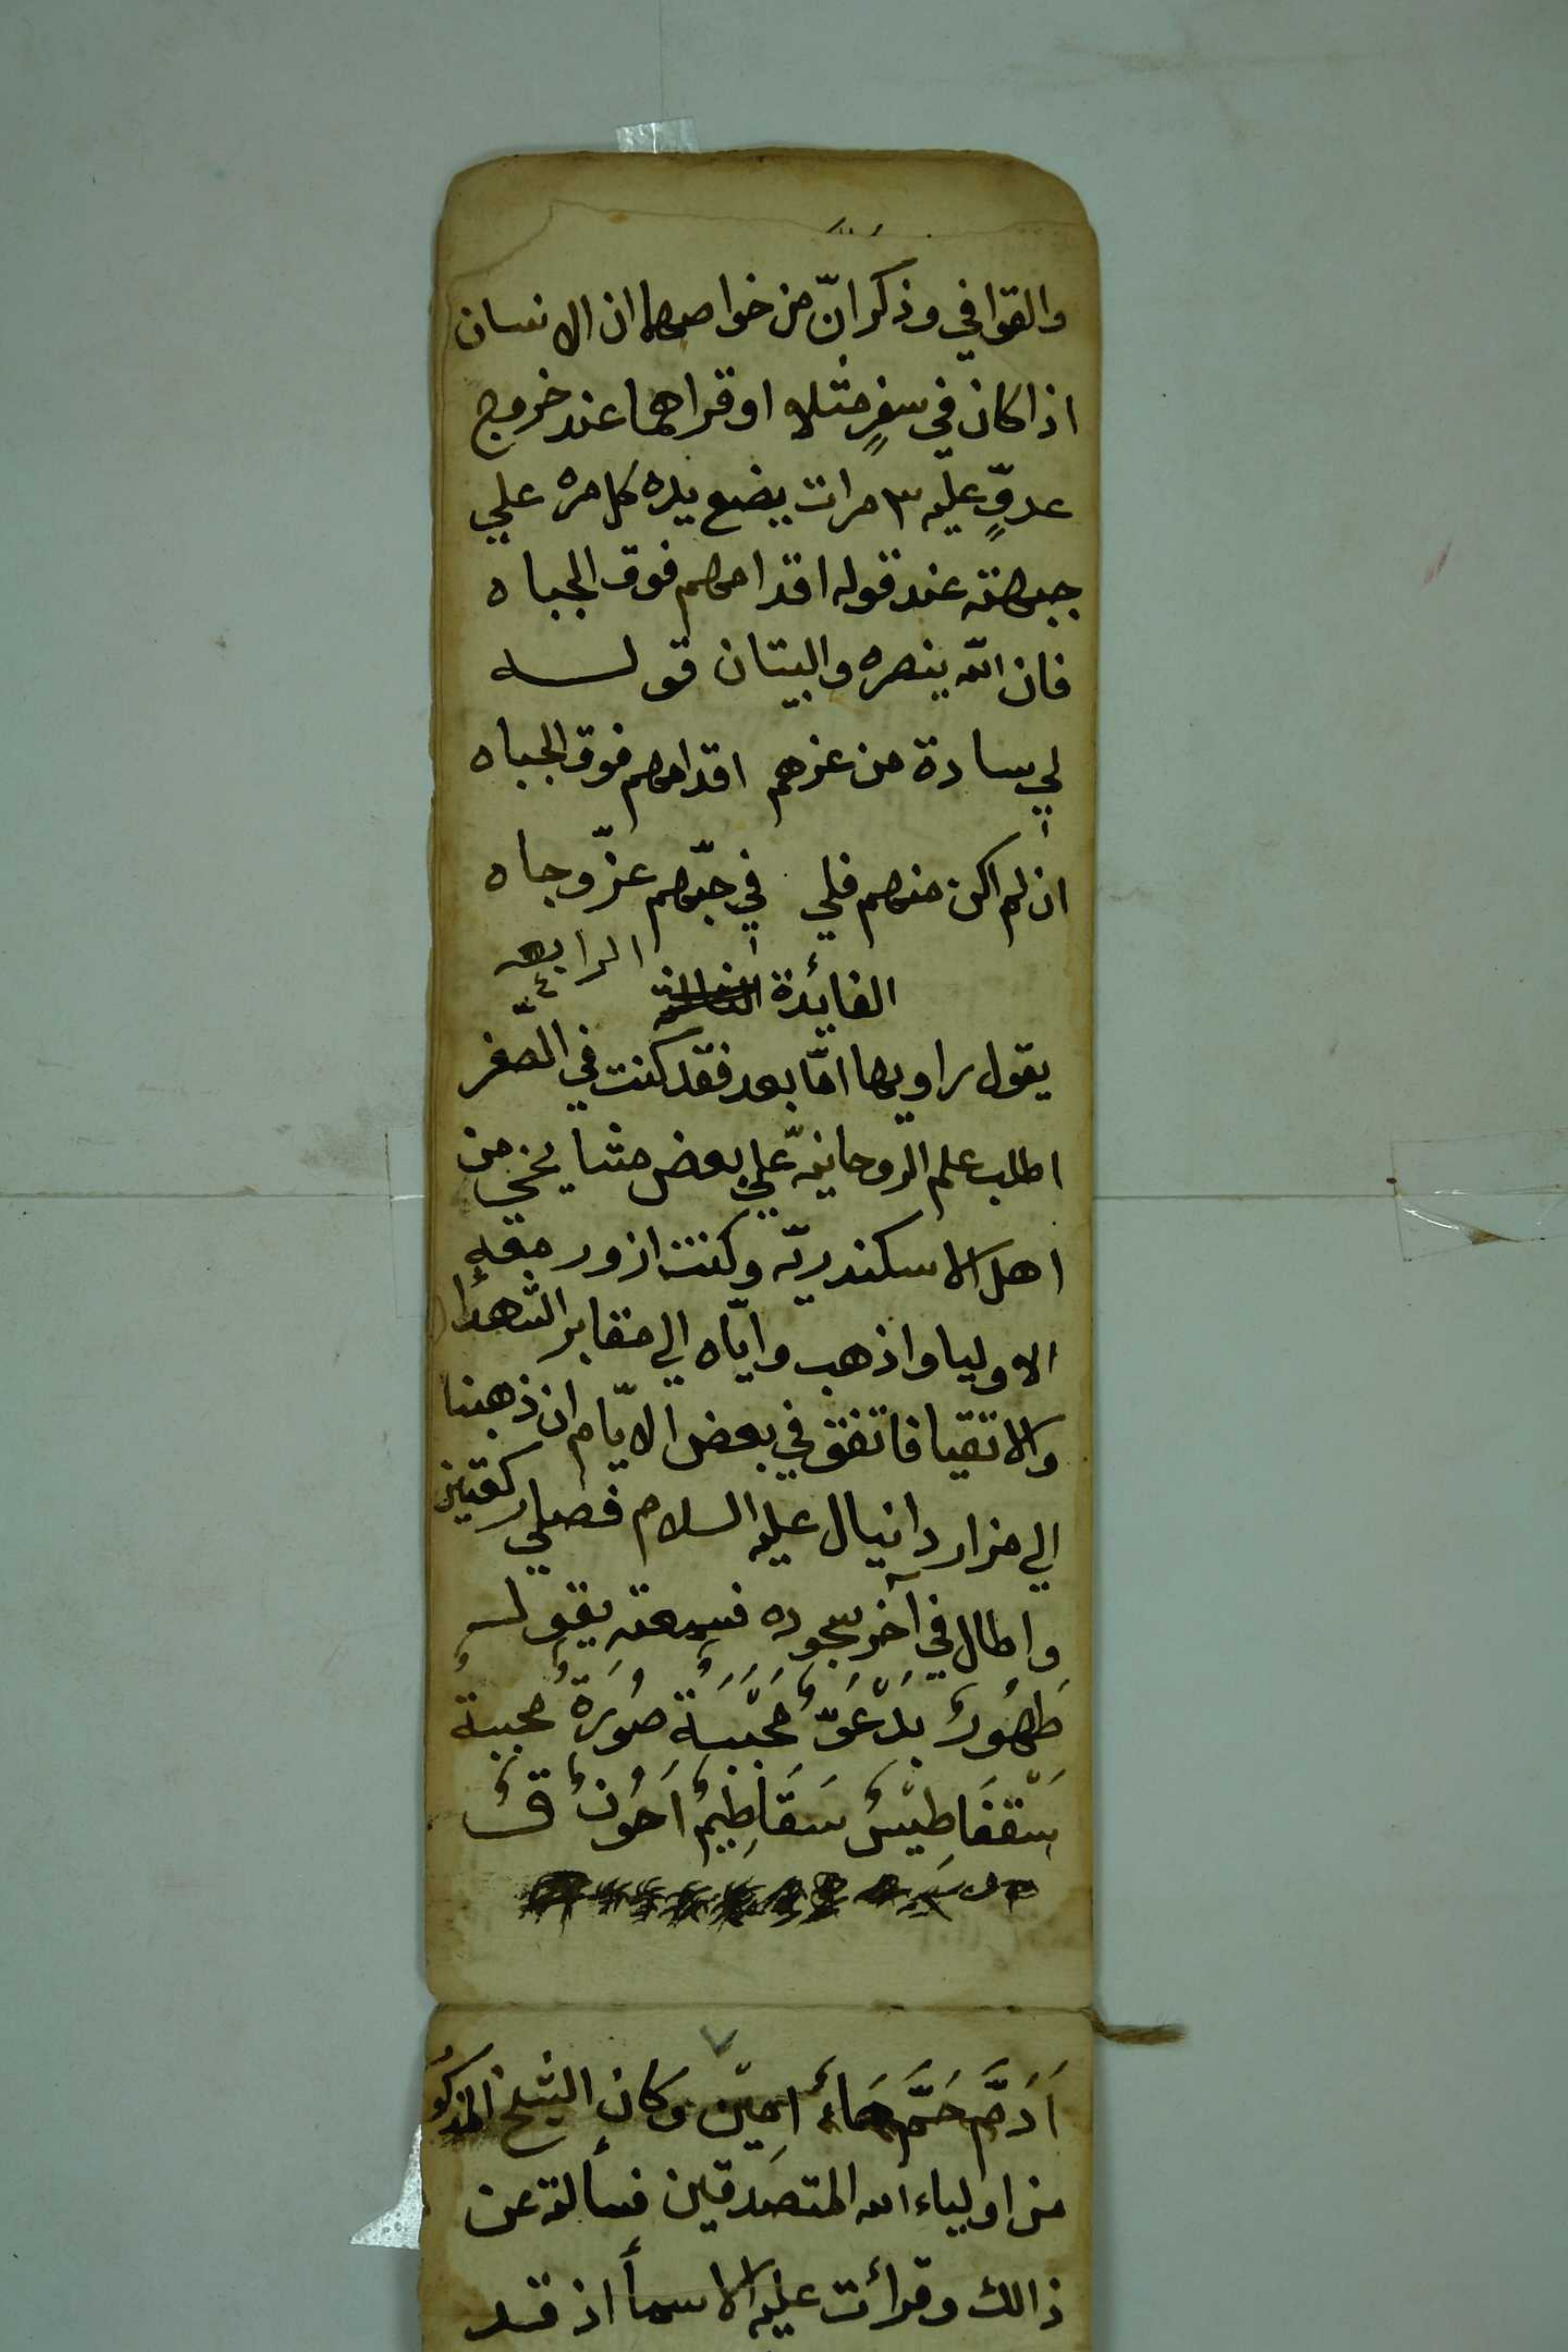 والقوافي وذكر انّ من خواصها ان الانسان
اذا كان في سفرٍ مثلا او قراهما عند خروج
عدوٍّ عليه ٣ مرات يضع يده كل مره علي
جبهته عند قوله اقدامهم فوق الجباه
فان الله ينصره والبيتان قوله
لي سادة من عزهم اقدامهم فوق الجباه
ان لم اكن منهم فلي في حبّهم عزّ وجاه
الفائدة الرابعه
٤
يقول راويها امّا بعد فقد كنت في الصّغر
اطلب علم الروحانيّه علي بعض مشايخي من
اهل الاسكندريّه وكنت ازور معه
الاوليا واذهب وايّاه الي مقابر الشهدا
والاتقيا فاتفق في بعض الايّام ان ذهبنا
الي مزار دانيال عليه السلام فصلي ركعتين
واطال في آخر سجوده فسمعته يقول
طَهُورٌ بَدْعَقٌ مُحَبَّبَةٌ صُورَةٌ مُحببةٌ
سَقْفَاطِيْسٌ سَقَاطِيمٌ اَحُونٌ قٌ
اَدَمَّ حَمَّ هَاءٌ امِيْن وكان الشيخ المذكو
من اولياء الله المتصدقين فسألته عن
ذالك وقرأت عليه الاسمأ اذ قد